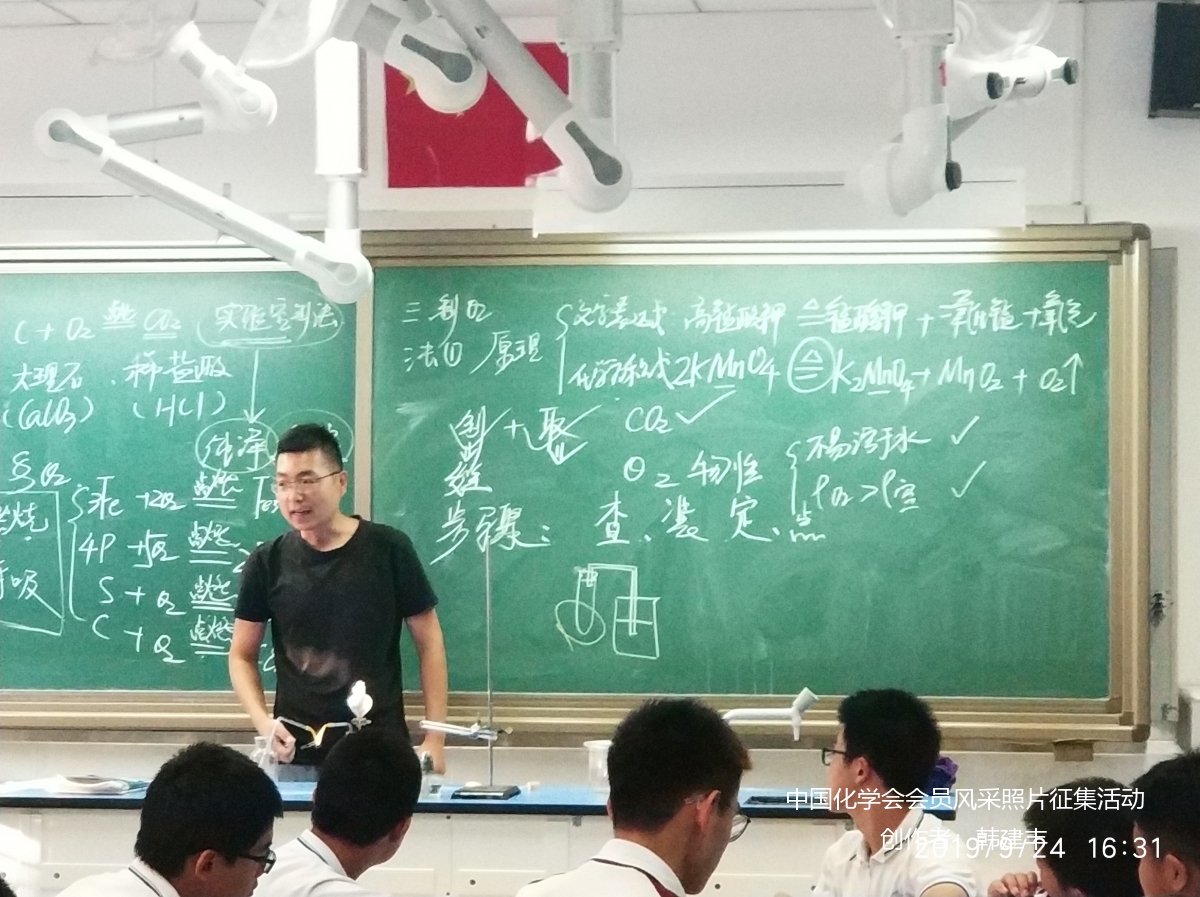 C + O₂ 点燃 CO₂ 实验室制法
大理石、稀盐酸
(CaCO₃) (HCl)
纯净
O₂
燃烧
呼吸
点燃
4P + 5O₂ 点燃
S + O₂ 点燃
C + O₂ 点燃
三制O₂
法① 原理
文字表达式 高锰酸钾 △ 锰酸钾 + 二氧化锰 + 氧气
化学方程式 2KMnO₄ △ K₂MnO₄ + MnO₂ + O₂↑
CO₂ ✓
O₂ 物性
不易溶于水 ✓
ρO₂ > ρ空 ✓
步骤： 查、装、定、点
中国化学会会员风采照片征集活动
创作者 韩建丰
2019/9/24 16:31